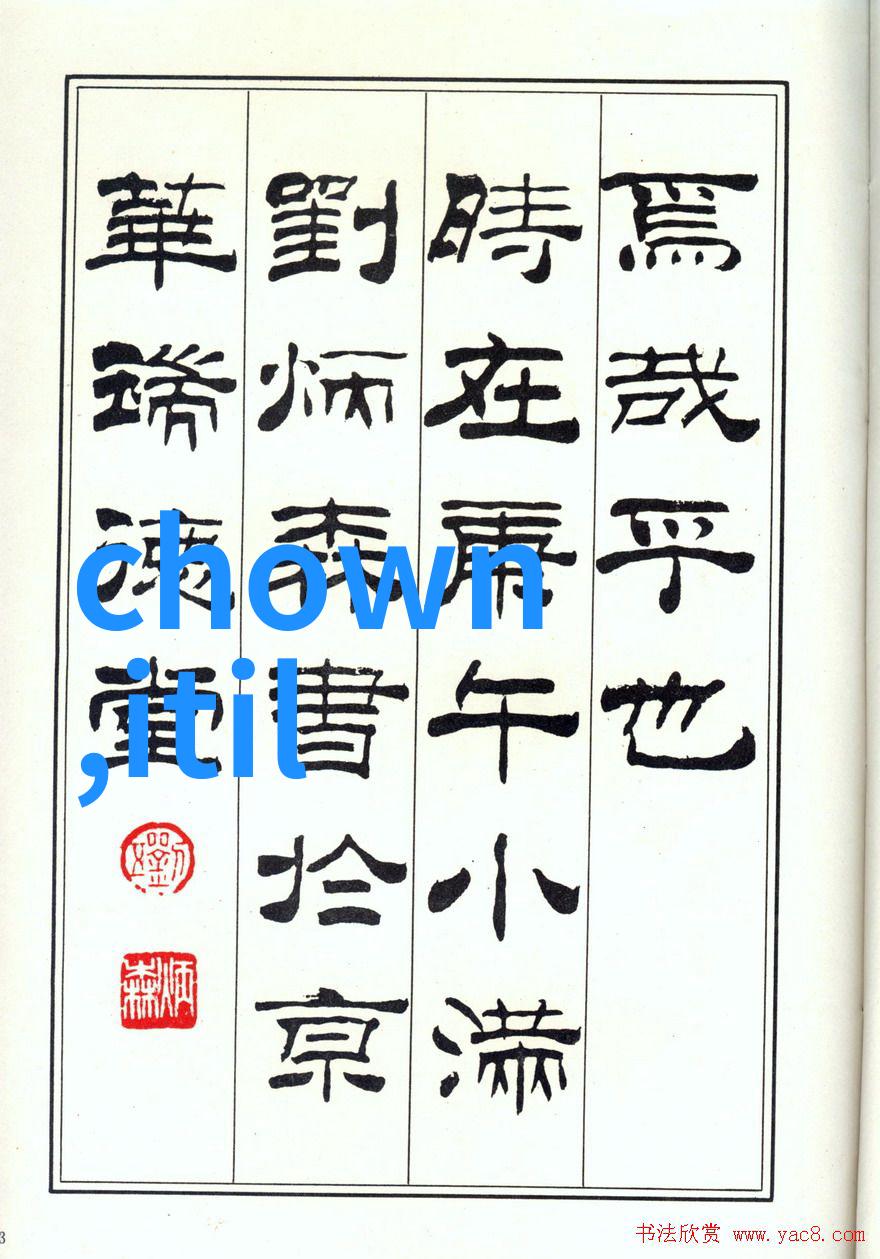 焉哉乎也
時在庚午小滿
劉炳森書於京
華瑞德堂
chown
,itil
劉
炳森
3
书法欣赏 www.yac8.com